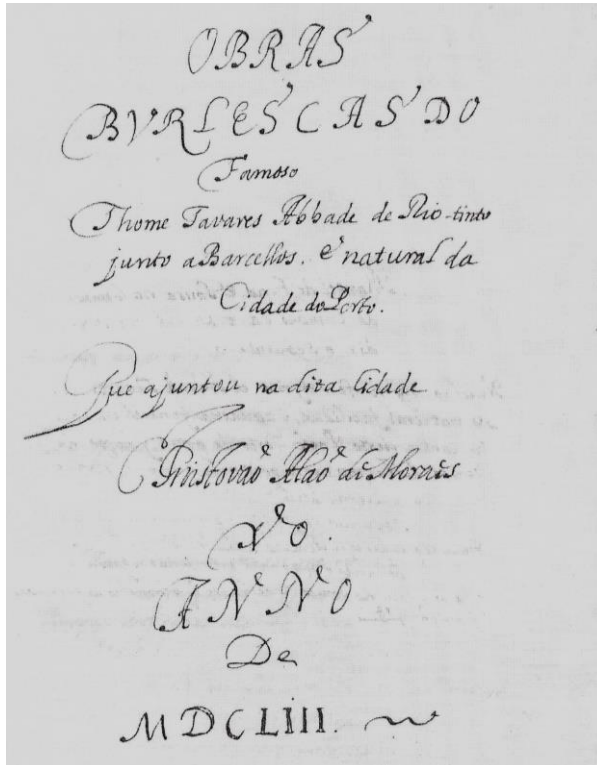 OBRAS
BVRLESCAS DO
Famoso
Thome Tavares Abbade de Rio-tinto
junto a Barcellos. e natural da
Cidade do Porto.
Que ajuntou na dita Cidade
Christovaõ Alaõ de Moraes
NO.
ANNO
De
MDCLIII.